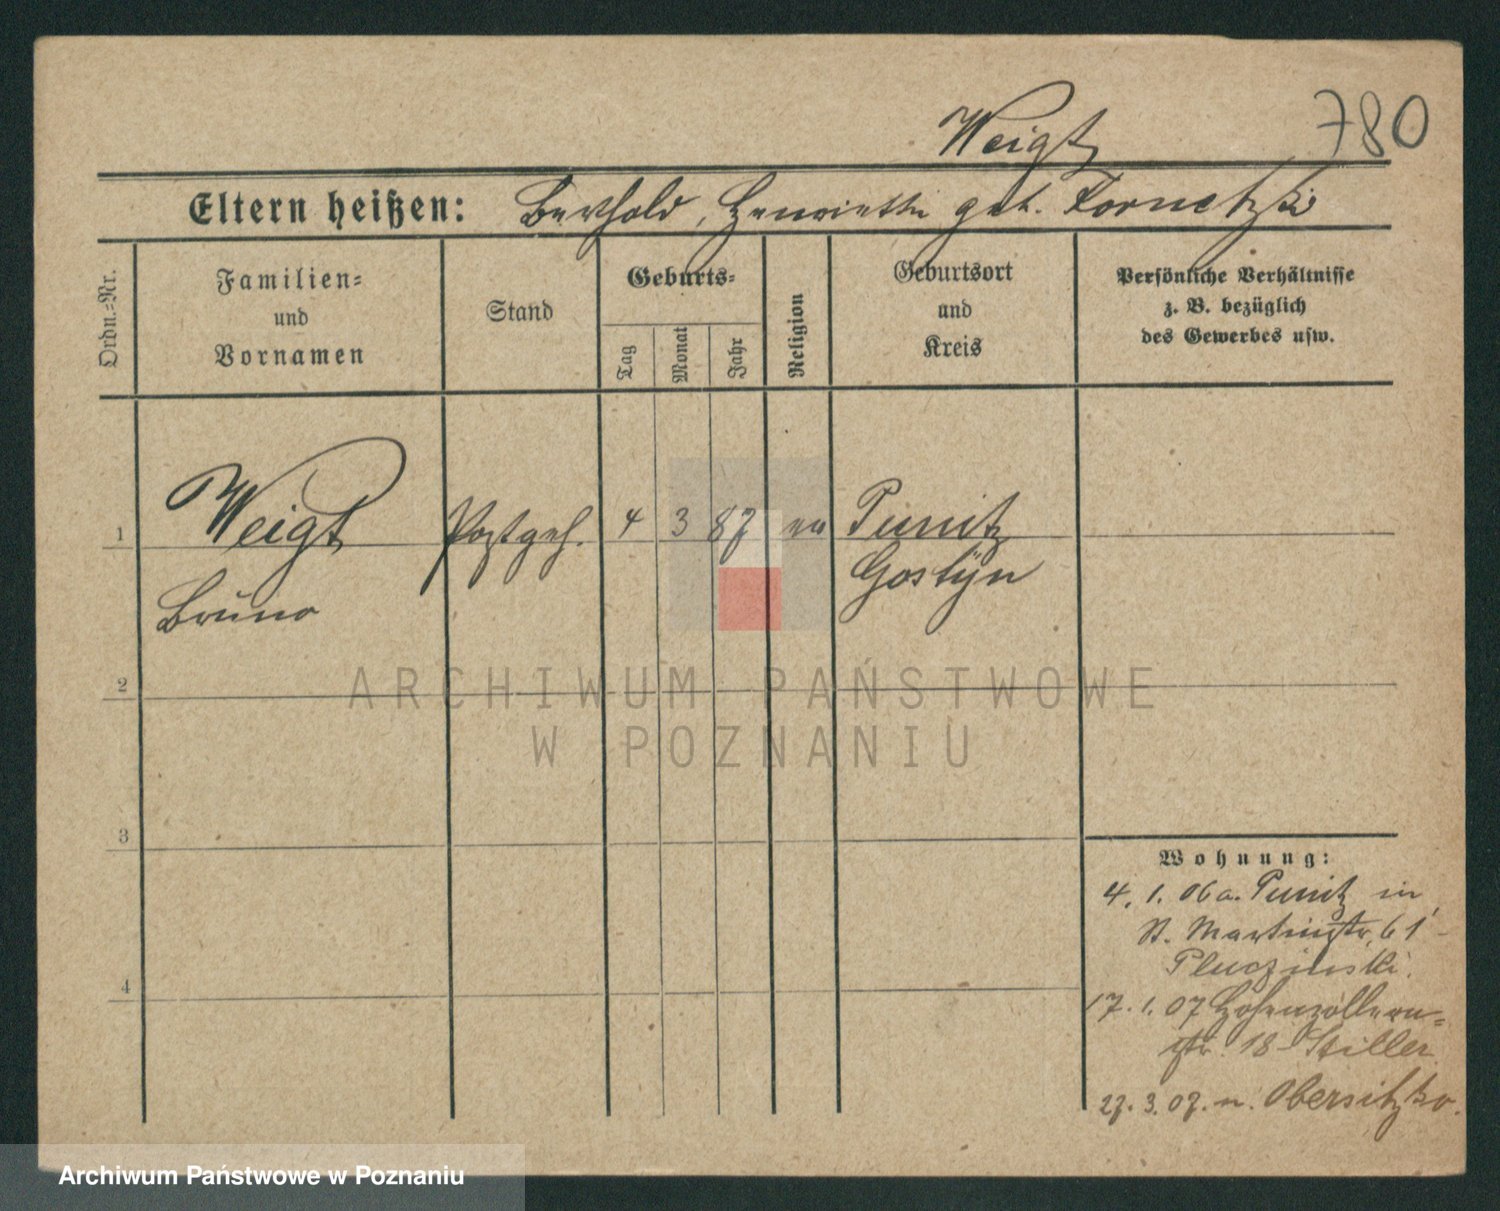 Weigt 780
Eltern heißen: Berthold, Henriette geb. Tornetzki
Ordn.-Nr.
Familien-
und
Vornamen
Stand
Geburts-
Tag
Monat
Jahr
Religion
Geburtsort
und
Kreis
Persönliche Verhältnisse
z. B. bezüglich
des Gewerbes usw.
1 Weigt Postgeh. 4 3 87 ev Punitz
Bruno Gostyn
2
3
4
Wohnung:
4. 1. 06 a. Punitz in
St. Martinstr. 61
Pluczinski.
17. 1. 07 Hohenzollern-
str. 18 Stiller
27. 3. 07. n. Obersitzko.
ARCHIWUM PAŃSTWOWE
W POZNANIU
Archiwum Państwowe w Poznaniu